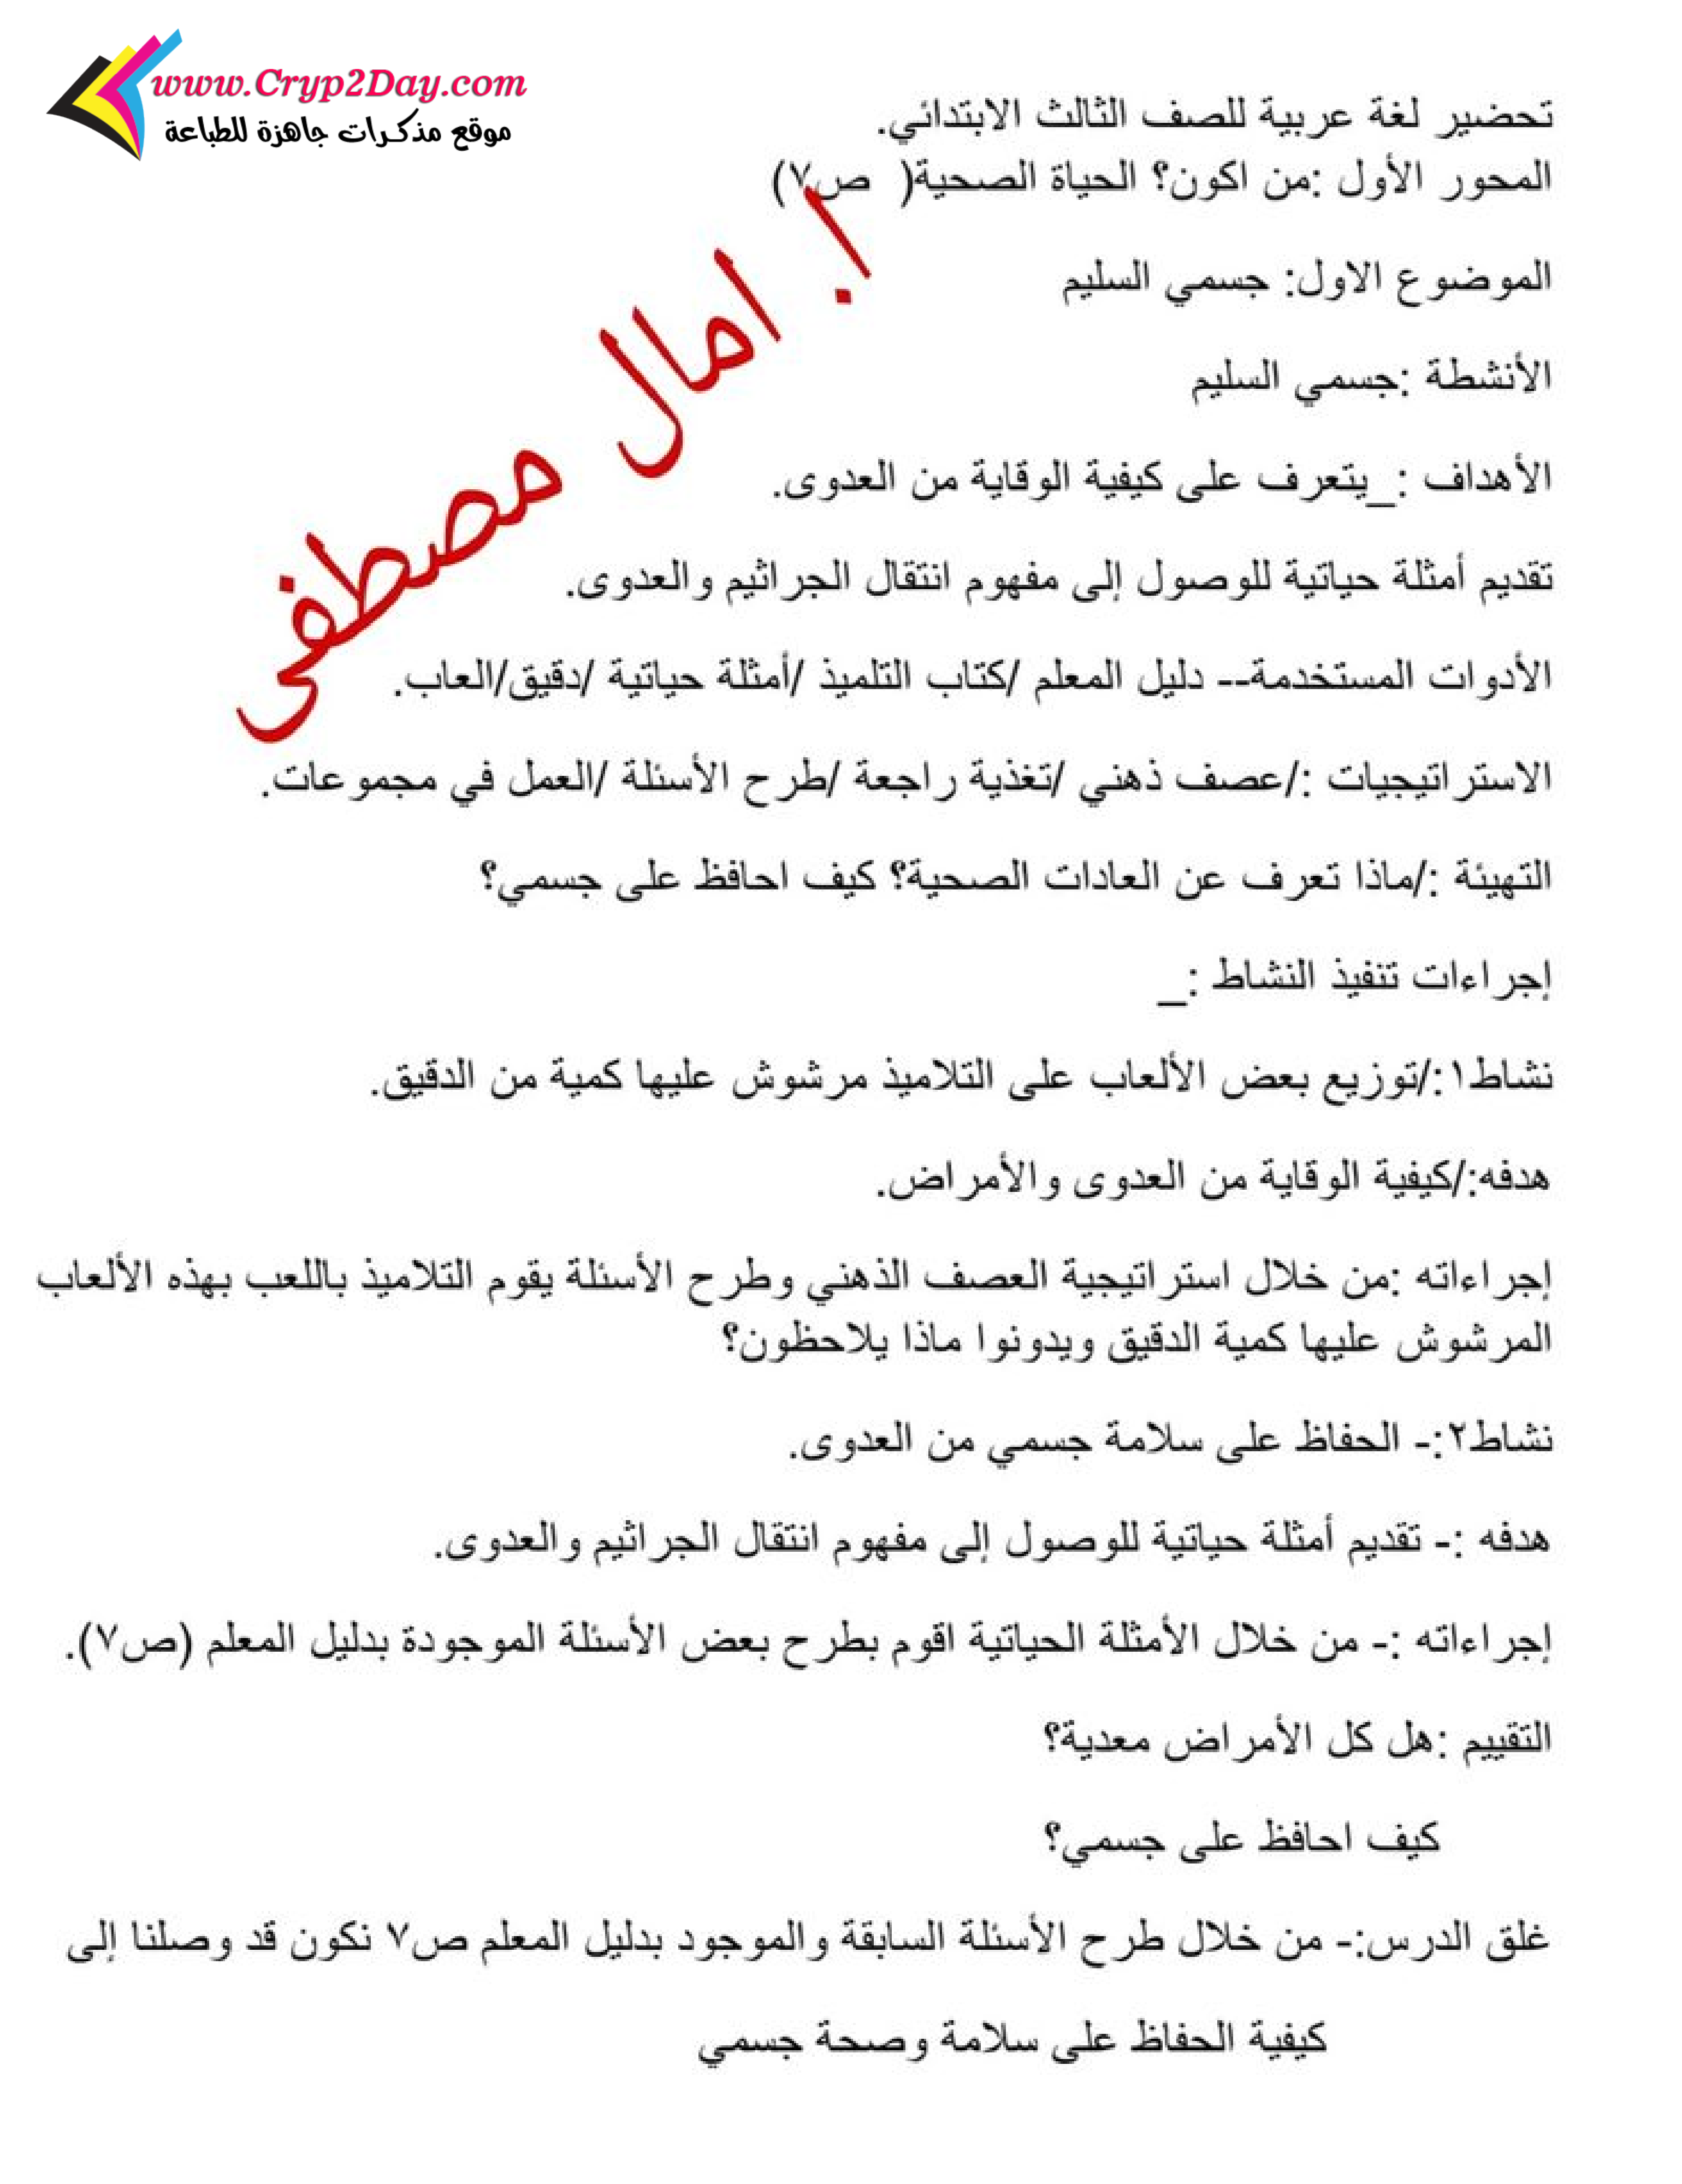 www.Cryp2Day.com
موقع مذكرات جاهزة للطباعة
تحضير لغة عربية للصف الثالث الابتدائي.
المحور الأول :من اكون؟ الحياة الصحية( ص٧)
ا. امال مصطفى
الموضوع الاول: جسمي السليم
الأنشطة :جسمي السليم
الأهداف :_يتعرف على كيفية الوقاية من العدوى.
تقديم أمثلة حياتية للوصول إلى مفهوم انتقال الجراثيم والعدوى.
الأدوات المستخدمة-- دليل المعلم /كتاب التلميذ /أمثلة حياتية /دقيق/العاب.
الاستراتيجيات :/عصف ذهني /تغذية راجعة /طرح الأسئلة /العمل في مجموعات.
التهيئة :/ماذا تعرف عن العادات الصحية؟ كيف احافظ على جسمي؟
إجراءات تنفيذ النشاط :_
نشاط١:/توزيع بعض الألعاب على التلاميذ مرشوش عليها كمية من الدقيق.
هدفه:/كيفية الوقاية من العدوى والأمراض.
إجراءاته :من خلال استراتيجية العصف الذهني وطرح الأسئلة يقوم التلاميذ باللعب بهذه الألعاب
المرشوش عليها كمية الدقيق ويدونوا ماذا يلاحظون؟
نشاط٢:- الحفاظ على سلامة جسمي من العدوى.
هدفه :- تقديم أمثلة حياتية للوصول إلى مفهوم انتقال الجراثيم والعدوى.
إجراءاته :- من خلال الأمثلة الحياتية اقوم بطرح بعض الأسئلة الموجودة بدليل المعلم (ص٧).
التقييم :هل كل الأمراض معدية؟
كيف احافظ على جسمي؟
غلق الدرس:- من خلال طرح الأسئلة السابقة والموجود بدليل المعلم ص٧ نكون قد وصلنا إلى
كيفية الحفاظ على سلامة وصحة جسمي